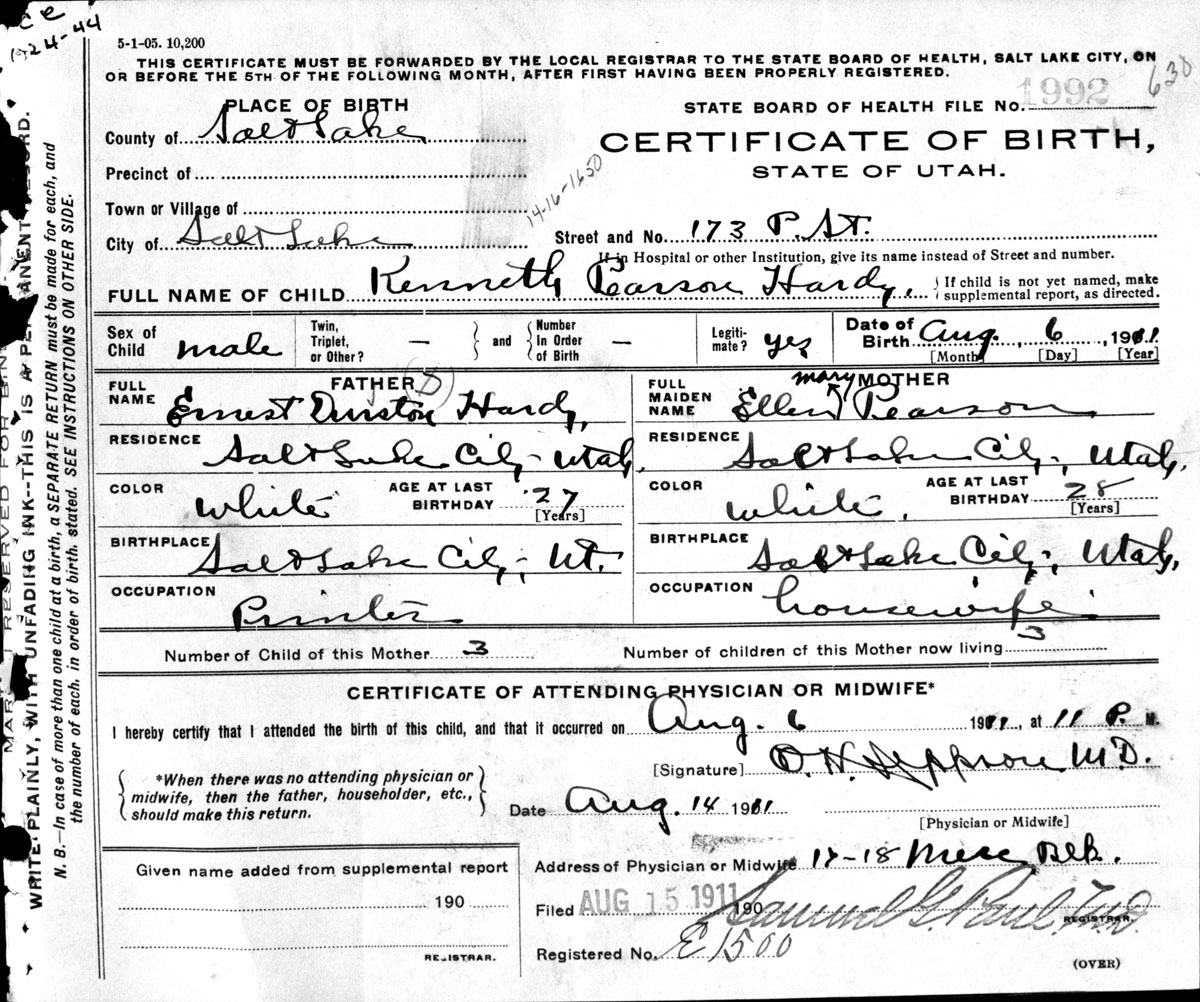 ce
1924-44
5-1-05. 10,200
THIS CERTIFICATE MUST BE FORWARDED BY THE LOCAL REGISTRAR TO THE STATE BOARD OF HEALTH, SALT LAKE CITY, ON
OR BEFORE THE 5TH OF THE FOLLOWING MONTH, AFTER FIRST HAVING BEEN PROPERLY REGISTERED.
PLACE OF BIRTH
STATE BOARD OF HEALTH FILE NO. 1992 630
County of Salt Lake
CERTIFICATE OF BIRTH,
Precinct of
STATE OF UTAH.
14-16-1650
Town or Village of
City of Salt Lake
Street and No. 173 P. St.
If in Hospital or other Institution, give its name instead of Street and number.
FULL NAME OF CHILD Kenneth Pearson Hardy, { If child is not yet named, make
supplemental report, as directed.
Sex of Child male Twin, Triplet, or Other? — and Number In Order of Birth — Legiti-mate? yes Date of Birth Aug. 6, 1911
[Month] [Day] [Year]
FATHER D
mary MOTHER
FULL NAME Ernest Dunston Hardy,
FULL MAIDEN NAME Ellen Pearson
RESIDENCE Salt Lake City - Utah.
RESIDENCE Salt Lake City, Utah,
COLOR white AGE AT LAST BIRTHDAY 27 [Years]
COLOR white. AGE AT LAST BIRTHDAY 28 [Years]
BIRTHPLACE Salt Lake City, Ut.
BIRTHPLACE Salt Lake City, Utah,
OCCUPATION Printer
OCCUPATION housewife
Number of Child of this Mother 3 Number of children of this Mother now living 3
CERTIFICATE OF ATTENDING PHYSICIAN OR MIDWIFE*
I hereby certify that I attended the birth of this child, and that it occurred on Aug. 6 1911, at 11 P. M.
*When there was no attending physician or
midwife, then the father, householder, etc.,
should make this return.
[Signature] O. H. Jeppson M.D.
Date Aug. 14 1911
[Physician or Midwife]
Given name added from supplemental report
190
REGISTRAR.
Address of Physician or Midwife 17-18 Merc Blk.
Filed AUG 15 1911 190 Samuel G. Paul, M.D.
REGISTRAR.
Registered No. E1500
(OVER)
RESERVED FOR
WRITE PLAINLY, WITH UNFADING INK--THIS IS A PERMANENT RECORD.
N. B.—In case of more than one child at a birth, a SEPARATE RETURN must be made for each, and
the number of each, in order of birth, stated. SEE INSTRUCTIONS ON OTHER SIDE.